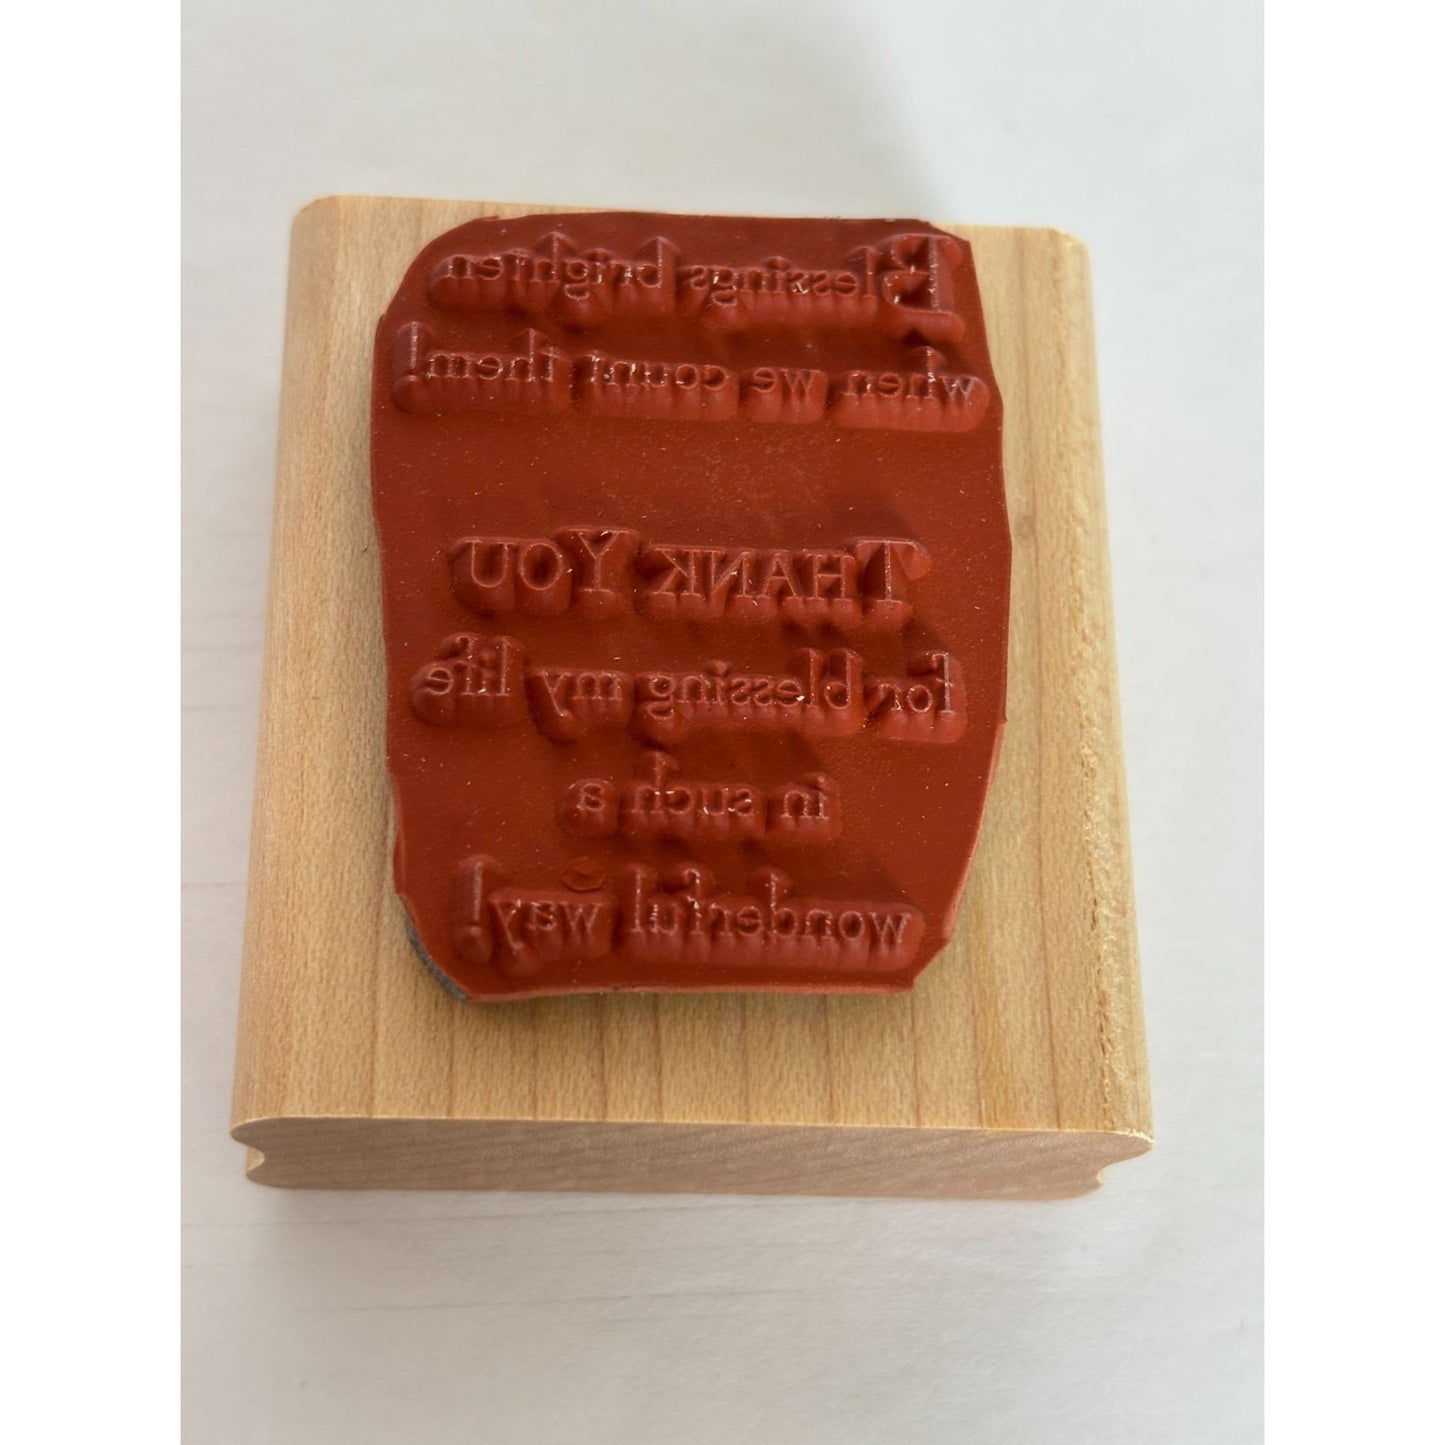 Blessings brighten
when we count them!
THANK YOU
for blessing my life
in such a
wonderful way!